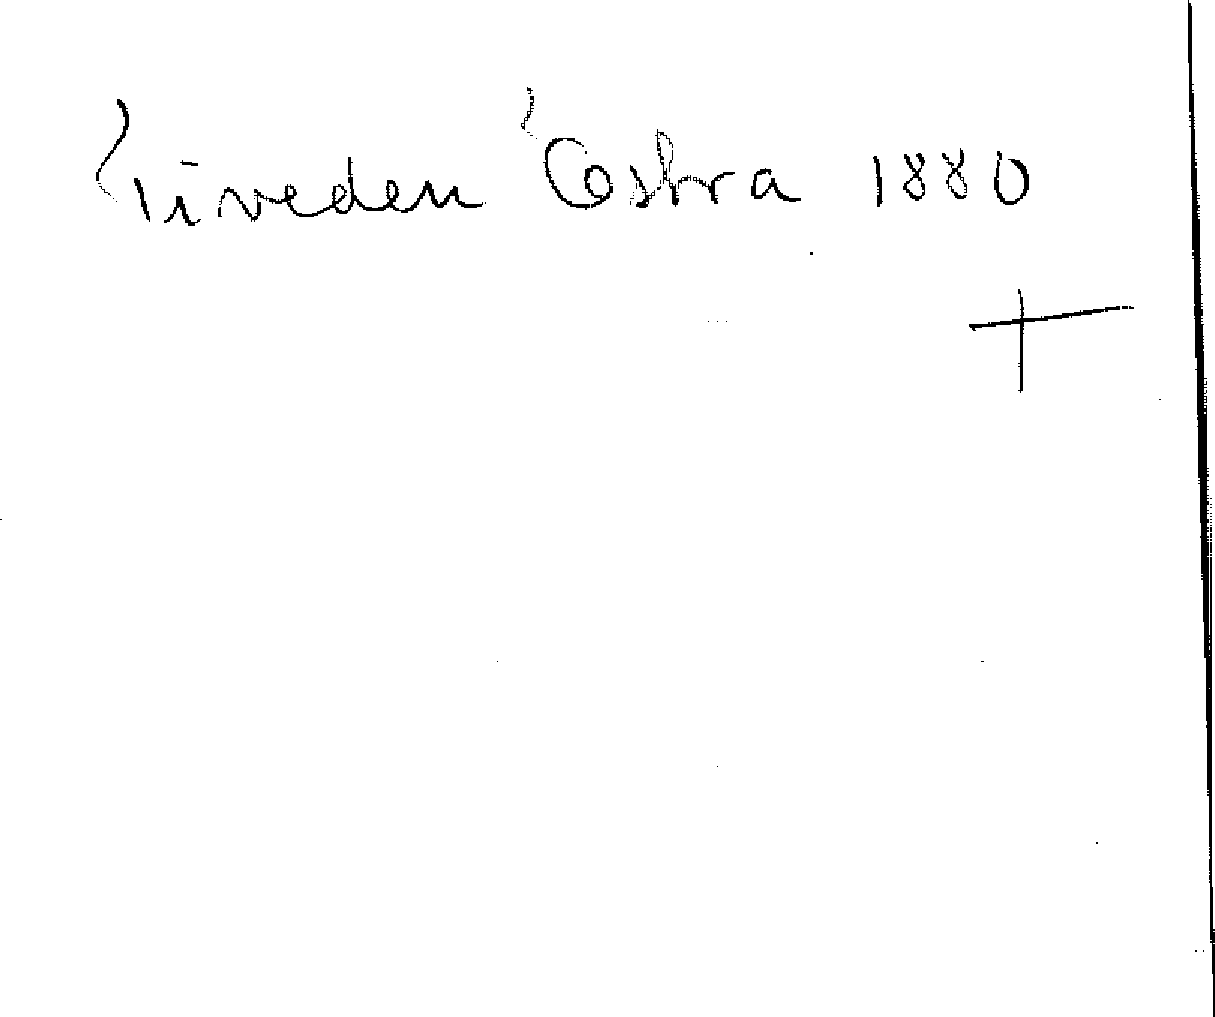 Tiveden Östra 1880
+